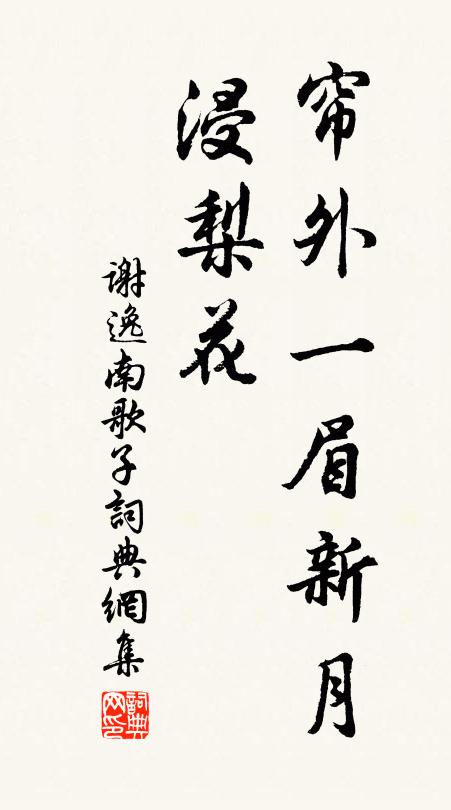 帘外一眉新月
浸梨花
谢逸南歌子詞典網集
詞典網印